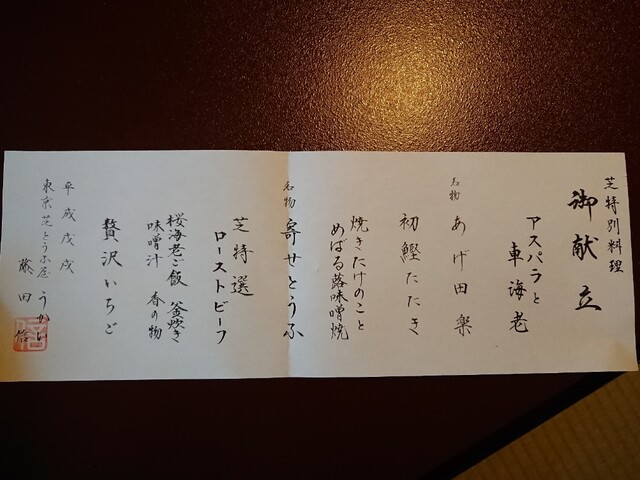 芝特別料理
御献立
アスパラと
車海老
名物 あげ田楽
初鰹たたき
焼きたけのこと
めばる蕗味噌焼
名物 寄せとうふ
芝特選
ローストビーフ
桜海老ご飯 釜炊き
味噌汁 香の物
贅沢いちご
平成戊戌
東京芝とうふ屋うかい
藤田